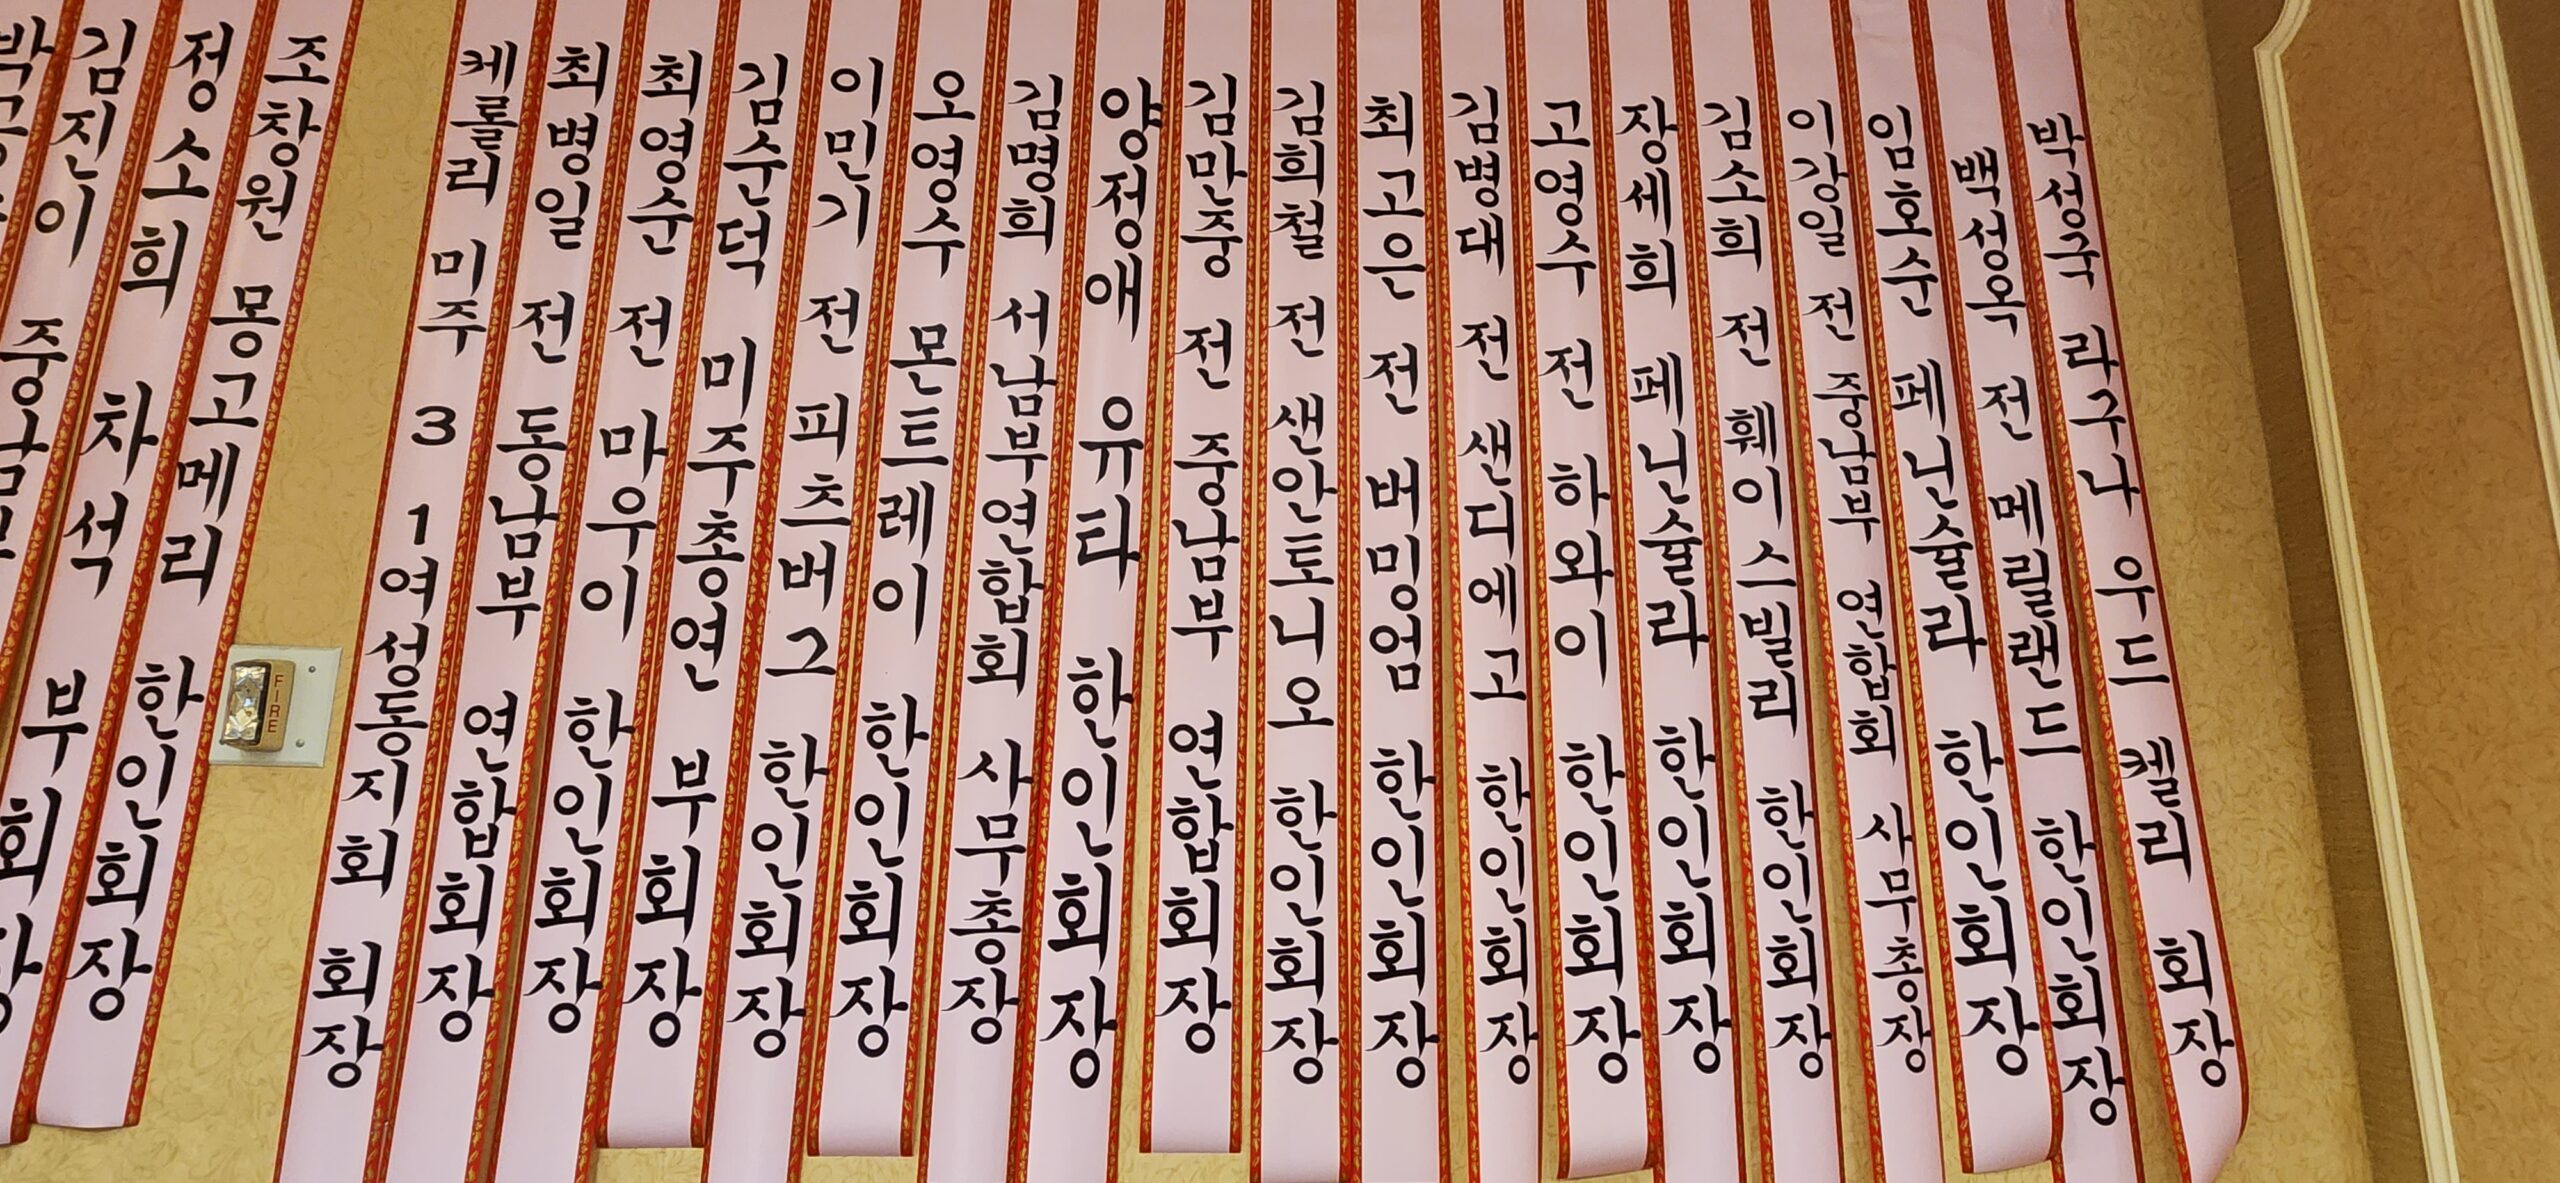 김진이
중남부
정소희 차석 부회장
조창원 몽고메리 한인회장
FIRE
케롤리 미주 3 1여성동지회 회장
최병일 전 동남부 연합회장
최영순 전 마우이 한인회장
김수덕 미주총연 부회장
이민기 전 피츠버그 한인회장
오영수 몬트레이 한인회장
김명희 서남부연합회 사무총장
양정애 유타 한인회장
김만중 전 중남부 연합회장
김희철 전 샌안토니오 한인회장
최고은 전 버밍엄 한인회장
김병대 전 샌디에고 한인회장
고영수 전 하와이 한인회장
장세희 페닌슐라 한인회장
김소희 전 훼이스빌리 한인회장
이강일 전 중남부 연합회 사무총장
임호순 페닌슐라 한인회장
백성옥 전 메릴랜드 한인회장
박성국 라구나 우드 켈리 회장